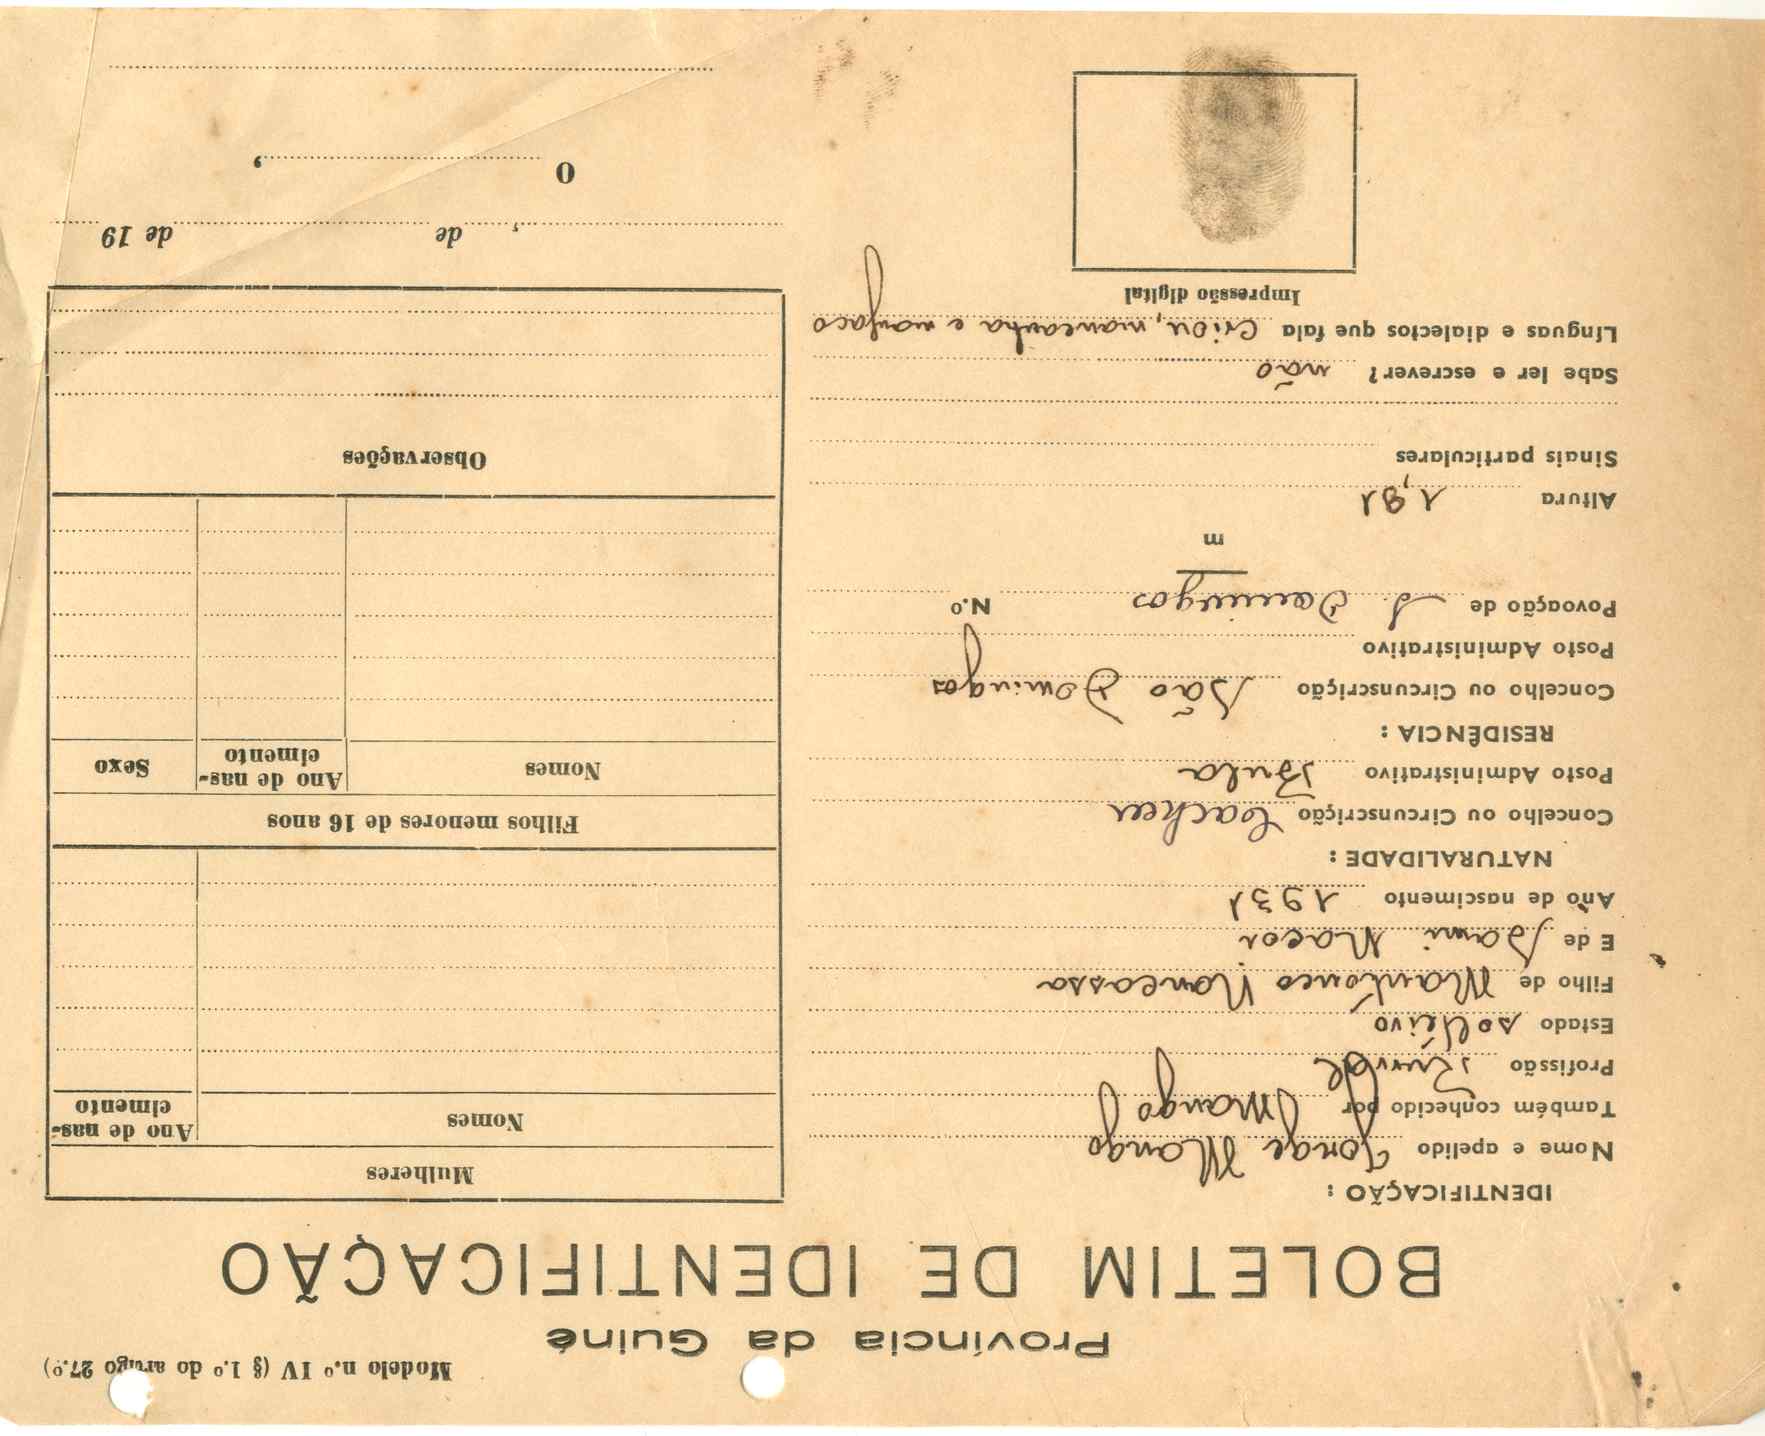 Modelo n.º IV (§ 1.º do artigo 27.º)
Província da Guiné
BOLETIM DE IDENTIFICAÇÃO
IDENTIFICAÇÃO:
Nome e apelido Jorge Mango
Também conhecido por Mango
Profissão
Estado solteiro
Filho de Nancassa
E de Sami Nacor
Ano de nascimento 1931
NATURALIDADE:
Concelho ou Circunscrição Cacheu
Posto Administrativo Bula
RESIDÊNCIA:
Concelho ou Circunscrição São Domingos
Posto Administrativo
Povoação de S. Domingos N.º
m
Altura 1,81
Sinais particulares
Sabe ler e escrever? não
Línguas e dialectos que fala Criou, mancanha e manjaco
Impressão digital
Mulheres
Nomes Ano de nas-
cimento
Filhos menores de 16 anos
Nomes Ano de nas- Sexo
cimento
Observações
, de de 19
O ,